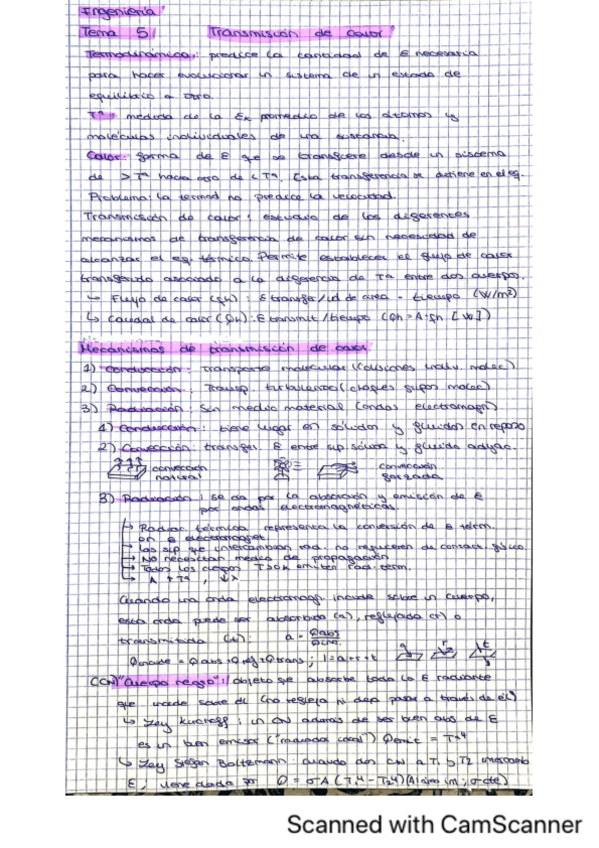 Ingeniería
Tema 5 Transmisión de calor
Termodinámica: predice la cantidad de E necesaria
para hacer evolucionar un sistema de un estado de
equilibrio a otro.
Tª medida de la Ek promedio de los átomos y
moléculas individuales de una sustancia.
Calor: forma de E qe se transfiere desde un sistema
de > Tª hacia otro de < Tª. Esta transferencia se detiene en el eq.
Problema: la termod no predice la velocidad.
Transmisión de calor: estudio de los diferentes
mecanismos de transferencia de calor sin necesidad de
alcanzar el eq. térmico. Permite establecer el flujo de calor
transferido asociado a la diferencia de Tª entre dos cuerpos.
↳ Flujo de calor (qh): E transfer/ud de area - tiempo (W/m²)
↳ Caudal de calor (Qh): E transmit/tiempo (Qh = A·qh [W])
Mecanismos de transmisión de calor
1) Conducción: transporte molecular (colisiones indiv. molec)
2) Convección: Transp. turbulencia (choques molec)
3) Radiación: Sin medio material (ondas electromagn)
1) Conducción: tiene lugar en sólidos y fluidos en reposo
2) Convección: transfer. E entre sup sólida y fluido adyac.
convección natural
convección forzada
3) Radiación: se da por la absorción y emisión de E
por ondas electromagnéticas.
↳ Radiac. térmica representa la conversión de E térm.
en E electromagnet.
↳ Las sup qe intercambian rad. no requieren de contact. físico
↳ No necesitan medio de propagación
↳ Todos los cuerpos T>0K emiten rad. term.
↳ A ↑Tª, ↓λ
Cuando una onda electromagn. incide sobre un cuerpo,
esta onda puede ser absorbida (a), reflejada (r) o
transmitida (t): a = Qabs/Qinc
Qincide = Qabs + Qref + Qtrans; 1 = a+r+t
(CN) "Cuerpo negro": objeto qe absorbe toda la E radiante
que incide sobre él (no refleja ni deja pasar a través de él)
↳ Ley Kirchoff: un CN además de ser buen abs de E
es un buen emisor ("radiador ideal") Qemit = T⁴
↳ Ley Stefan Boltzmann: cuando dos CN a T1 y T2 intercamb
E, viene dada por Q = σA (T1⁴ - T2⁴)
Scanned with CamScanner